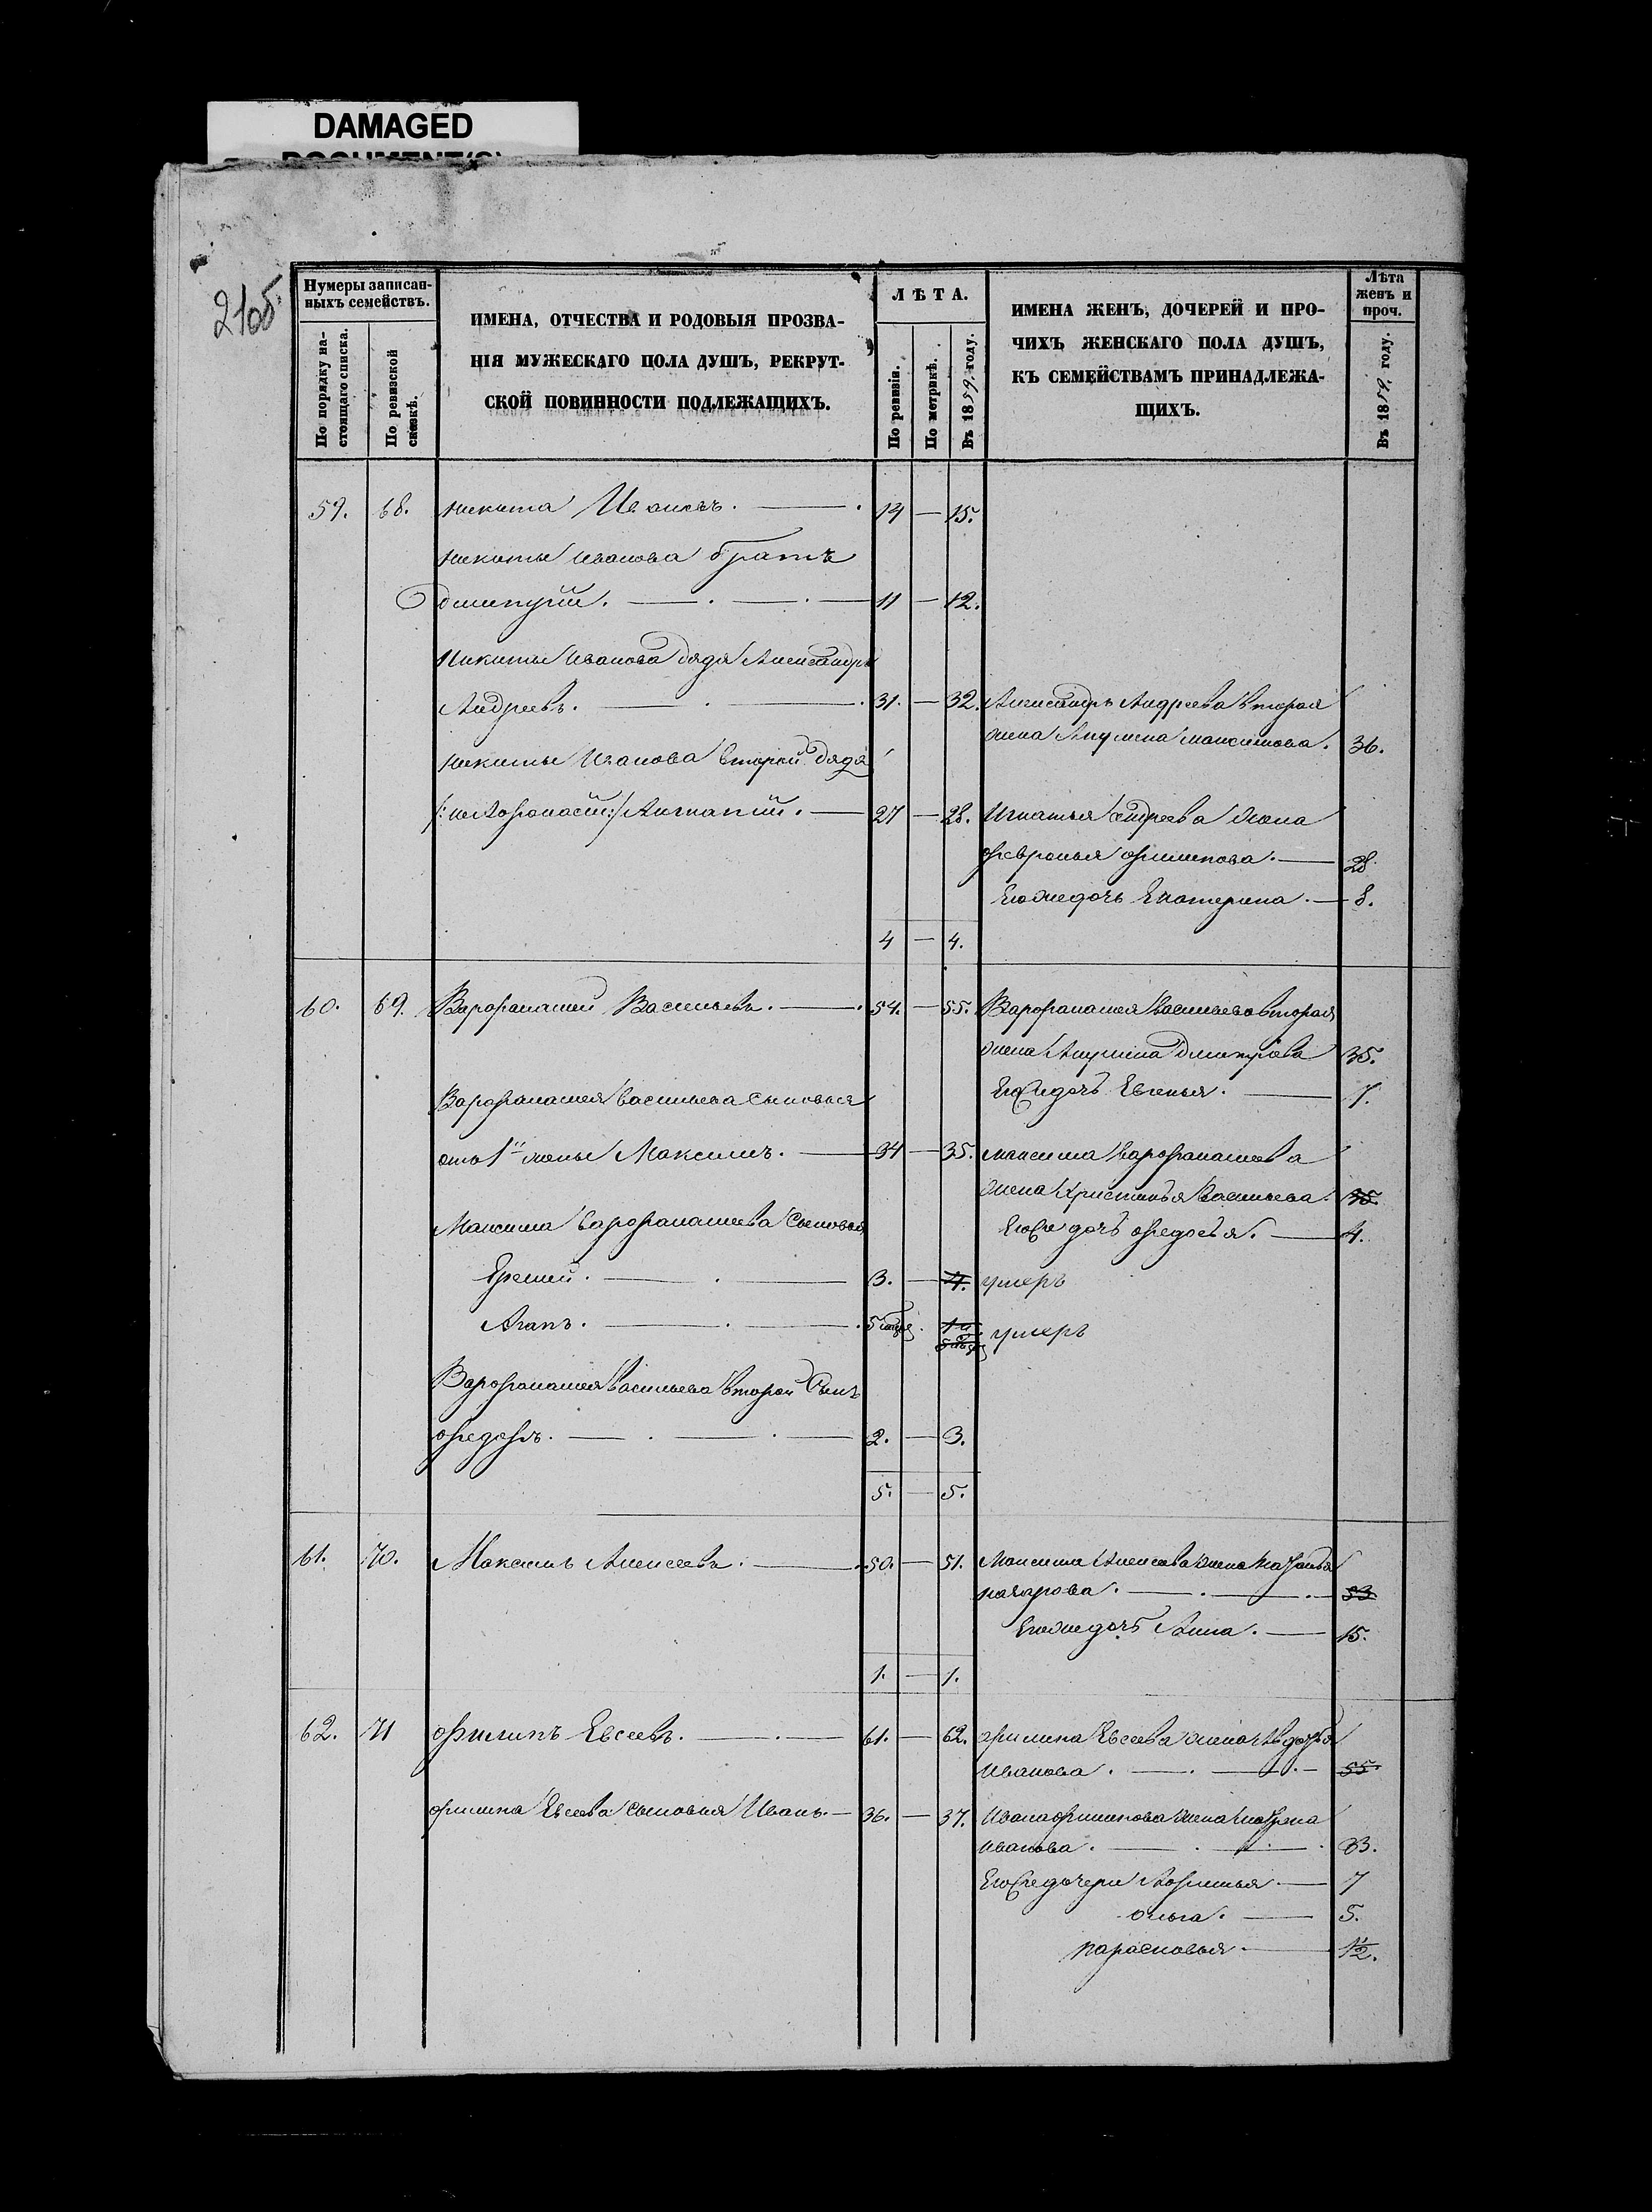 DAMAGED
21об
Нумеры записан-
ныхъ семействъ.
По порядку на-
стоящаго списка.
По ревизской
сказкѣ.
ИМЕНА, ОТЧЕСТВА И РОДОВЫЯ ПРОЗВА-
НІЯ МУЖЕСКАГО ПОЛА ДУШЪ, РЕКРУТ-
СКОЙ ПОВИННОСТИ ПОДЛЕЖАЩИХЪ.
ЛѢТА.
По ревизіи.
По метрикѣ.
Въ 1859. году.
ИМЕНА ЖЕНЪ, ДОЧЕРЕЙ И ПРО-
ЧИХЪ ЖЕНСКАГО ПОЛА ДУШЪ,
КЪ СЕМЕЙСТВАМЪ ПРИНАДЛЕЖА-
ЩИХЪ.
Лѣта
женъ и
проч.
Въ 1859. году.
59. 68. Никита Ивановъ. — 14 — 15.
Никиты Иванова братъ
Дмитрій. — 11 — 12.
Никиты Иванова дядя Александръ
Андреевъ. — 31. — 32. Александра Андреева вторая
жена Акулина Максимова. 36.
Никиты Иванова второй дядя
Игнатій. — 27 — 28. Игнатья Андреева жена
Февронья Филипова. — 28.
Его же дочь Екатерина. — 8.
4 — 4.
60. 69. Варфаламей Васильевъ. — 54. — 55. Варфаламея Васильева вторая
жена Акулина Дмитрова 35.
Его же дочь Евгенья. — 7.
Варфаламея Васильева сыновья
отъ 1й жены Максимъ. — 34 — 35. Максима Варфаламеева
жена Христинья Васильева. 35.
Максима Варфаламеева сыновья
Его же дочь Федосья. — 4.
Еремей. — 3. — 4. умеръ
Агапъ. — 5 умеръ
Варфаламея Васильева второй сынъ
Федоръ. — 2. — 3.
5. — 5.
61. 70. Максимъ Алексеевъ. — 50. — 51. Максима Алексеева жена Наталья
Назарова. — 53
Его же дочь Анна. — 15.
1. — 1.
62. 71 Филипъ Евсеевъ. — 61. — 62. Филипа Евсеева жена Авдотья
Иванова. — 55.
Филипа Евсеева сыновья Иванъ. — 36. — 37. Ивана Филипова жена Матрена
Иванова. — 33.
Его же дочери Афимья. — 7
Ольга. — 5.
Парасковья. — 1½.